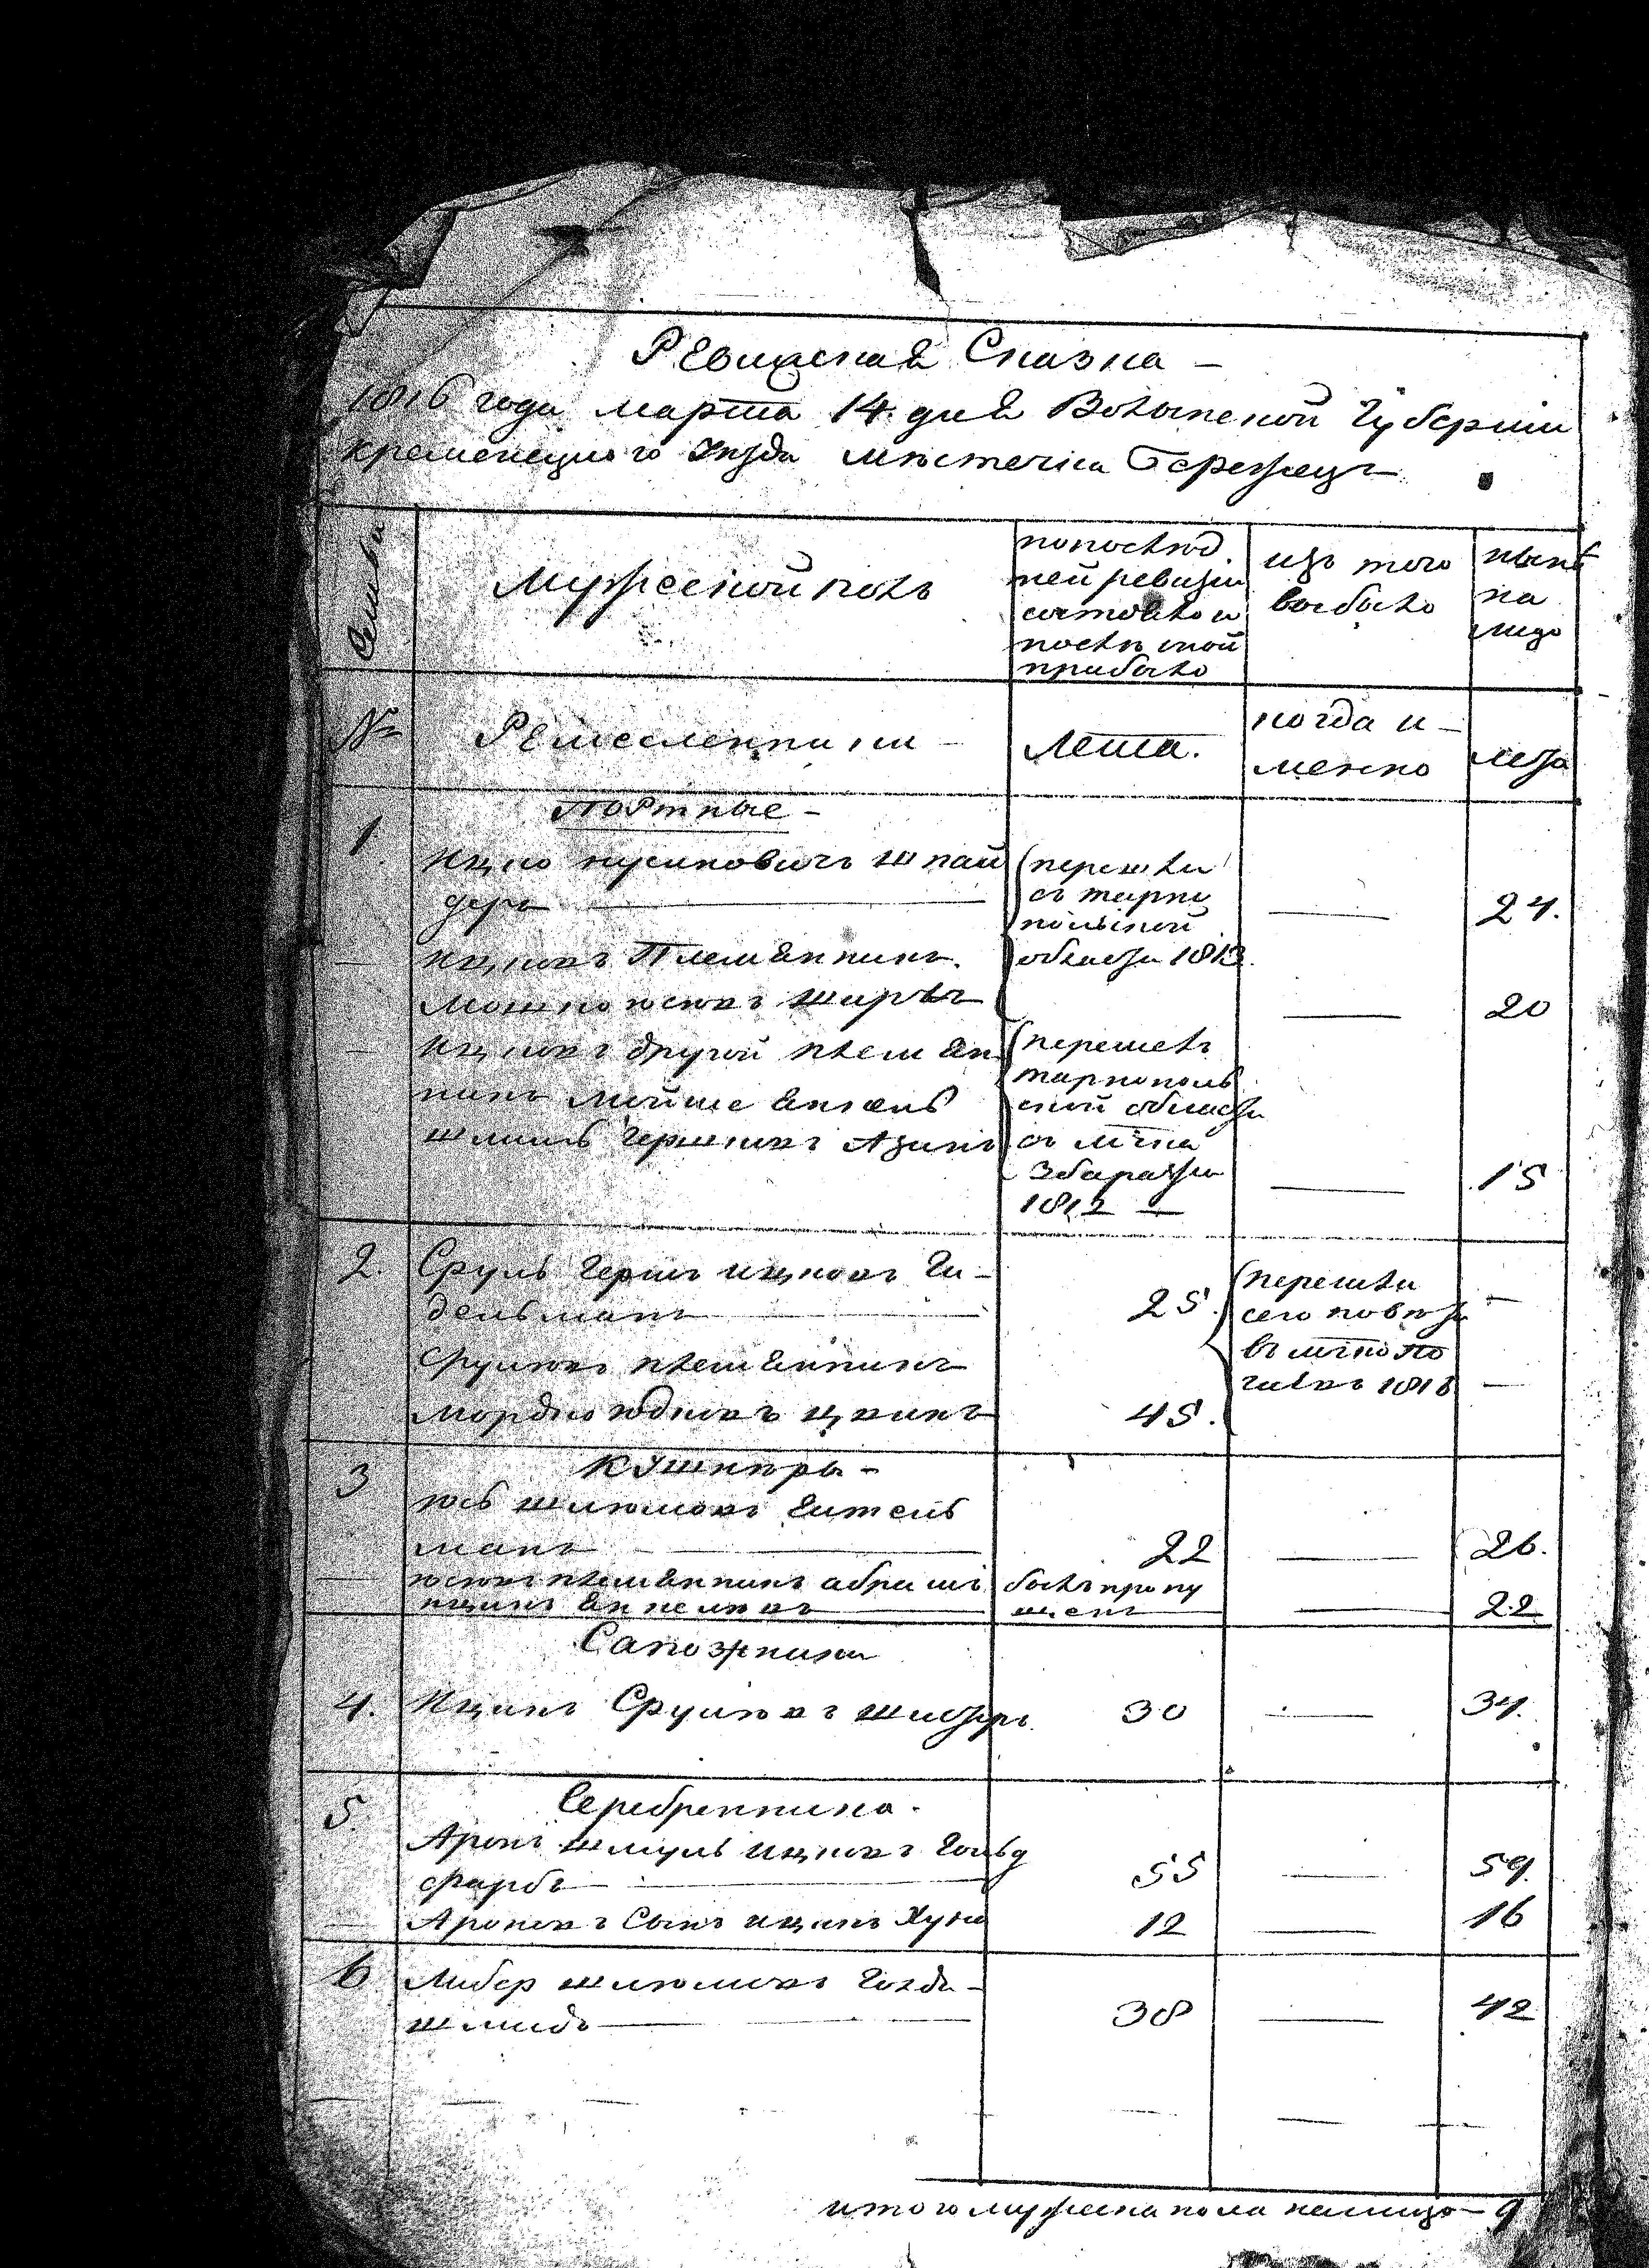 Ревизская Сказка —
1816 года марта 14 дня Волынской Губернии
кременецкого уезда местечка Бережецъ
Семьи
мужеской полъ
по послед
ней ревизіи
состояло и
после оной
прибыло
изъ того
выбыло
ныне
на
лицо
№
Ремесленники —
Лета.
когда и —
менно
лета
Портные —
1.
Ицко
Шнай
деръ
(перешли
съ тарно
польской
области 1813.
— 24.
Ицковъ Племянникъ.
Мошко Юсковъ
— 20
Ицковъ другой племян
никъ Мойше Янкель
Шмиль Гершковъ
(перешелъ
тарнополь
ской области
съ мчка
Збаража
1812 —
— 15
2.
Сруль Гершъ Ицковъ Ги —
дельманъ
25.
(перешли
сего повета
въ мчко По
1816
—
Срулевъ племянникъ
Мордко Юдковъ
45.
—
3
Кушнеры —
Юсь Шлiомовъ
манъ
22
—
26.
Юсковъ племянникъ Абрамъ
Ицикъ Янкелевъ
былъ пропу
щенъ
—
22
Сапожники
4.
Ицикъ Срулевъ
30
—
34.
5.
Серебренники.
Аронъ Шмуль Ицковъ Гольд
фарбъ
55
—
59.
Ароновъ Сынъ Ицикъ Хуна
12
—
16
6
Либер Шлiомовъ Голд —
шмидъ
38
—
42
итого мужеска пола налицо — 9